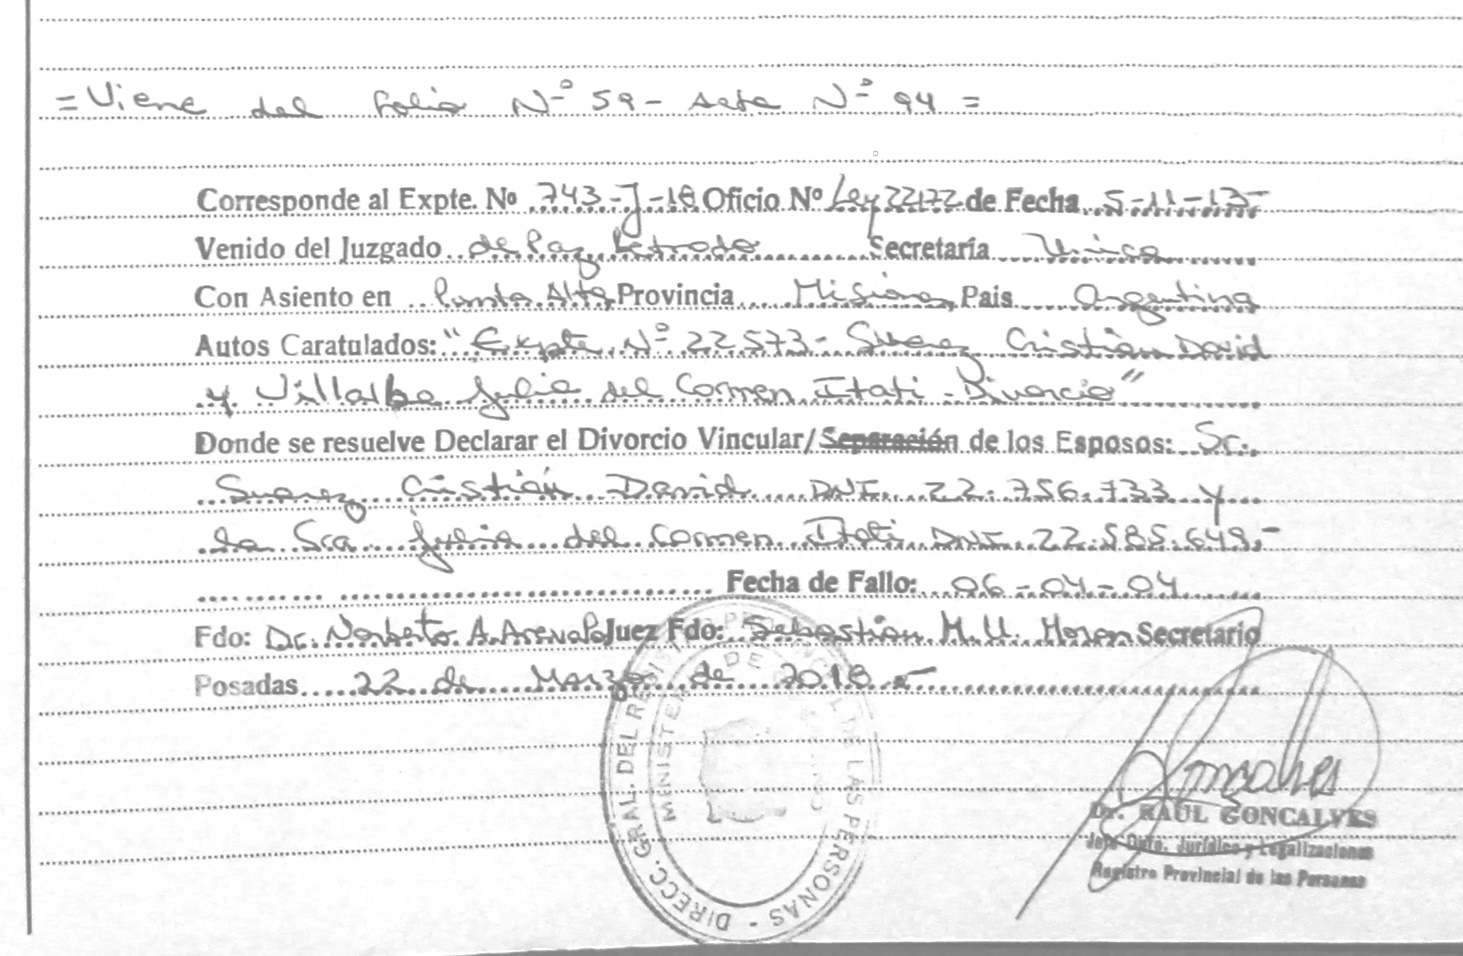 = Viene del folio Nº 59 - acta Nº 94 =
Corresponde al Expte. Nº 743-J-18 Oficio Nº Ley 22172 de Fecha 5-11-13-
Venido del Juzgado de Paz Letrado Secretaría Unica
Con Asiento en Punta Alta Provincia Misiones Pais Argentina
Autos Caratulados: "Expte Nº 22573- Suarez Cristián David
y Villalba Julia del Carmen Itati - Divorcio"
Donde se resuelve Declarar el Divorcio Vincular/Separación de los Esposos: Sr.
Suarez Cristián David DNI. 22.756.733 y
la Sra Julia del Carmen Itati DNI 22.585.649.-
Fecha de Fallo: 06-04-04
Fdo: Dr. Norberto A. Arevalo Juez Fdo: Sebastián M.U. Moren Secretario
Posadas 22 de Marzo de 2018.-
DIRECC. GRAL. DEL REGISTRO PROVINCIAL DE LAS PERSONAS -
MINISTERIO DE
Goncalves
Dr. RAUL GONCALVES
Jefe Dpto. Jurídico y Legalizaciones
Registro Provincial de las Personas